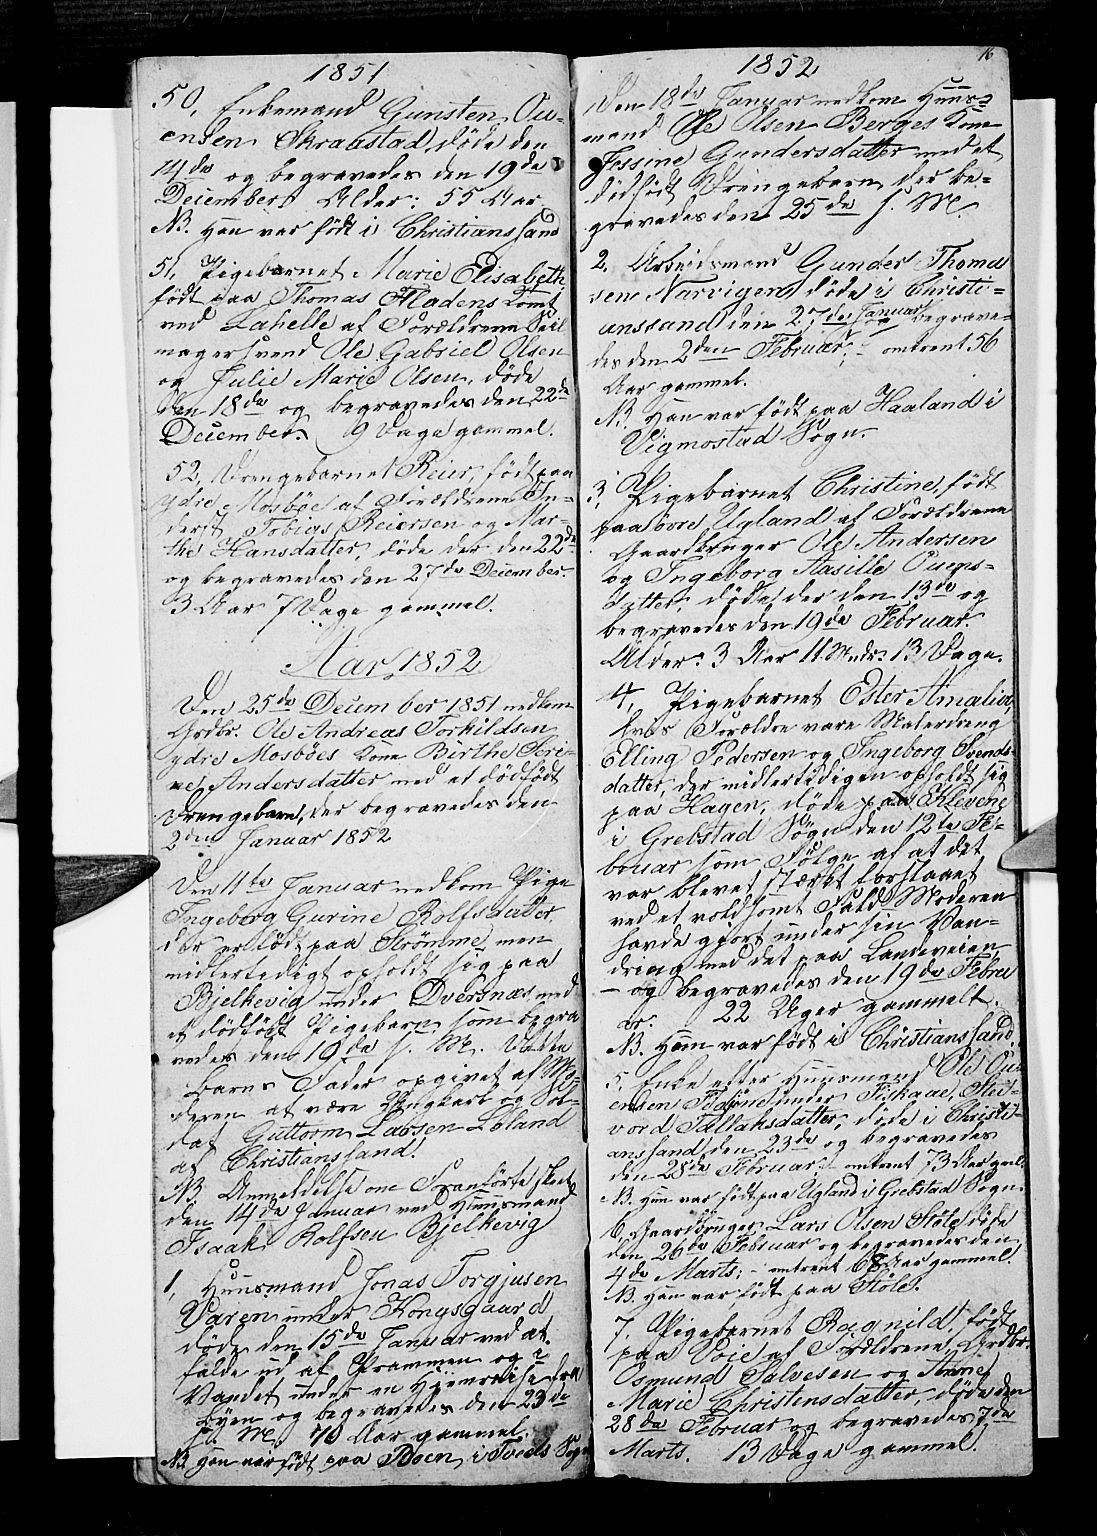 1851
50, Enkemand Gunsten Ou-
ensen Skraastad døde den
14de og begravedes den 19de
December. Alder: 55 Aar
NB. Han var født i Christianssand
51, Pigebarnet Marie Elisabeth
født paa Thomas Fladens Tomt
ved Lahelle af Forældrene Seil
magersvend Ole Gabriel Olsen
og Julie Marie Olsen, døde
den 18de og begravedes den 22de
December. 9 Dage gammel.
52, Drengebarnet Reier, født paa
ydre Mosbøe af Forældrene In-
derst Tobias Reiersen og Mar-
the Hansdatter, døde der den 22de
og begravedes den 27de December.
3 Aar 7 Dage gammel.
Aar 1852
Den 25de December 1851 nedkom
Grdbr. Ole Andreas Torkildsen
ydre Mosbøes Kone Birthe Seri-
ne Andersdatter med et dødfødt
Drengebarn, der begravedes den
2den Januar 1852
Den 11te Januar nedkom Pige
Ingeborg Gurine Rolfsdatter
der er født paa Strømme, men
midlertedigt opholdt sig paa
Bjelkevig under Dversnæs, med
et dødfødt Pigebarn som begra
vedes den 19de s. M. Dette
Barns Fader opgivet af Mo-
deren at være Ungkarl og Sol-
dat Guttorm Larsen Løland
af Christianssand.
NB. Anmeldelse om Foranførte skeet
den 14de Januar ved Huusmand
Isaak Rolfsen Bjelkevig
1, Huusmand Jonas Torgjusen
Varen under Kongsgaard
døde den 15de Januar ved at
falde ud af Prammen og i
Vandet under en Hjemreise fra
Byen og begravedes den 23de
s. M. 70 Aar gammel.
NB. Han var født paa Boen i Tveds Sogn
1852
16
Den 18de Januar nedkom Huus-
mand Ole Olsen Berges Kone
Jessine Gundersdatter med et
dødfødt Drengebarn, der be-
gravedes den 25de s. M.
2. Arbeidsmand Gunder Thoma
sen Narvigen døde i Christi-
anssand den 27de Januar begrave-
des den 2den Februar, - omtrent 56
Aar gammel.
NB. Han var født paa Haaland i
Vigmostad Sogn.
3, Pigebarnet Christine, født
paa øvre Ugland af Forældrene
Gaardbruger Ole Andersen
og Ingeborg Aasille Ouens-
datter, døde der den 13de og
begravedes den 19de Februar.
Alder: 3 Aar 11 Mndr. 13 Dage.
4, Pigebarnet Ester Amalia,
hvis Forældre vare Malerdreng
Elling Pedersen og Ingeborg Svends-
datter, der midlertidigen opholdt sig
paa Hagen, døde paa Klevene
i Grebstad Sogn den 12te Fe-
bruar som Følge af at det
var blevet stærkt forslaaet
ved et voldsomt Fald Moderen
havde gjort under sin Van-
dring med det paa Landeveien
- og begravedes den 19de Febru
ar. 22 Uger gammelt.
NB. Hun var født i Christianssand.
5, Enke efter Huusmand Ole Ou-
ensen under Fiskaae,
Tallaksdatter, døde i Christi-
anssand den 23de og begravedes
den 28de Februar; - omtrent 73 Aar gml.
NB. Hun var født paa Ugland i Grebstad Sogn.
6, Gaardbruger Lars Olsen Støle døde
den 26de Februar og begravedes den
4de Marts; - omtrent 68 Aar gammel.
NB. Han var født paa Støle.
7, Pigebarnet Ragnild, født
paa Voie af Forældrene, Grdbr.
Osmund Salvesen og Anne
Marie Christensdatter, døde den
28de Februar og begravedes 7de
Marts. 13 Dage gammel.